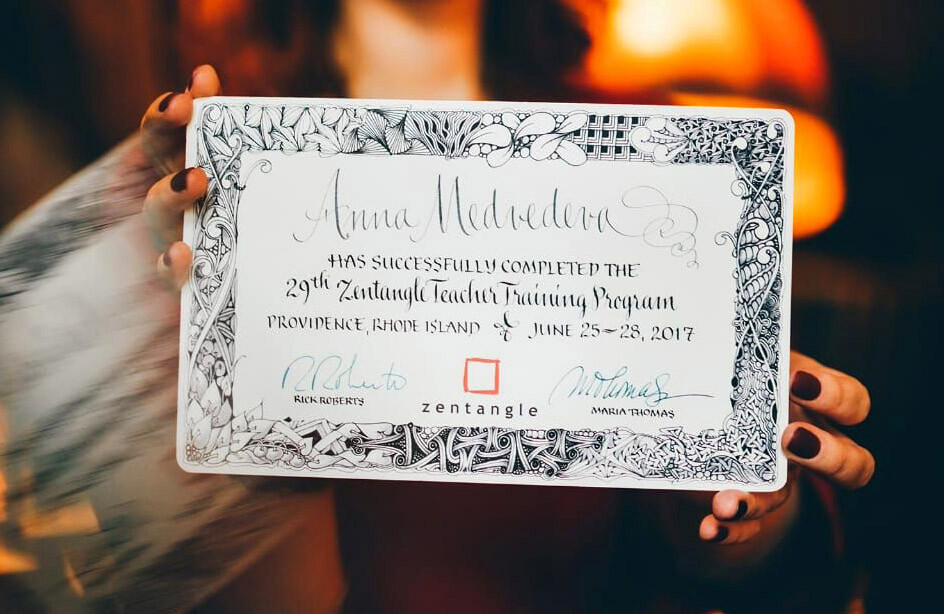 Anna Medvedeva
HAS SUCCESSFULLY COMPLETED THE
29th Zentangle Teacher Training Program
PROVIDENCE, RHODE ISLAND & JUNE 25–28, 2017
R Roberts
M Thomas
RICK ROBERTS
zentangle
MARIA THOMAS